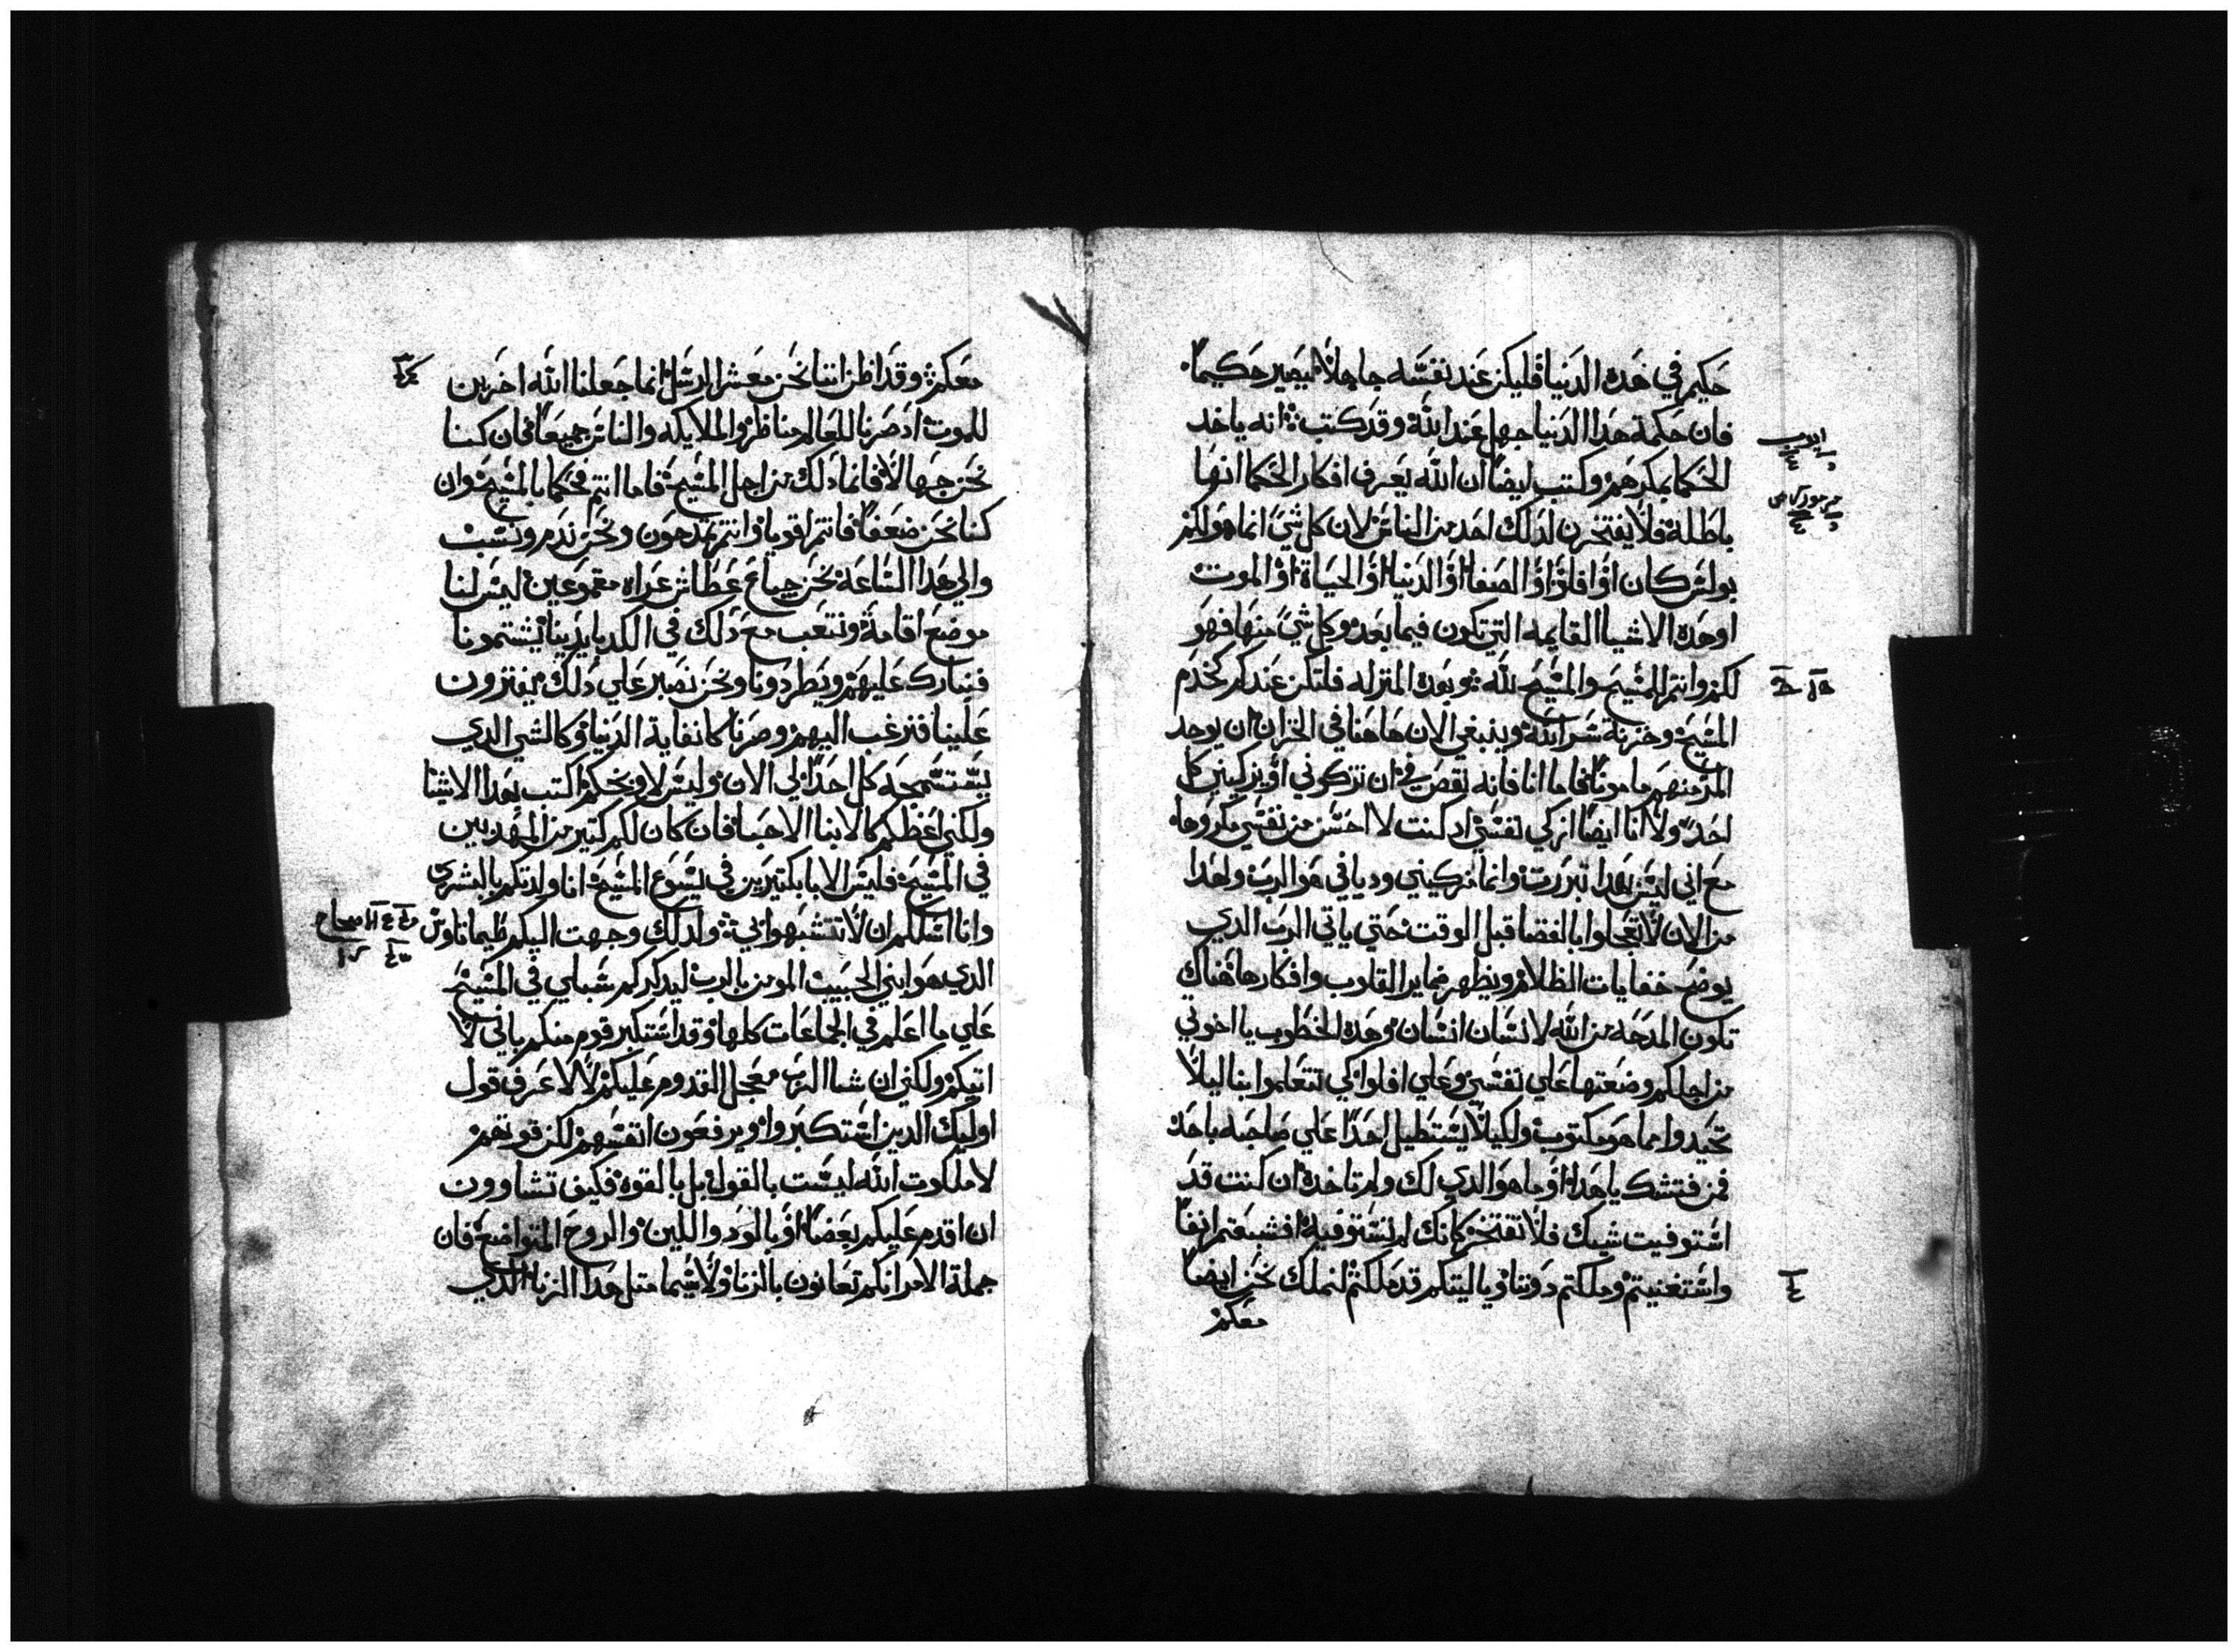 حكيم في هده الدنيا فليكن عند نفسه جاهلاً ليصير حكيماً
فان حكمة هدا الدنيا جهل عند الله وقد كتب انه ياخد
الحكما بمكرهم وكتب ايضاً ان الله يعرف افكار الحكما انها
باطلة فلا يفتخرن لدلك احد من الناس لان كل شي انما هو لكم
بولس كان او افلوا او الصفا او الدنيا او الحياة او الموت
او هده الاشيا القايمه التي تكون فيما بعد وكل شي منها فهو
لكم وانتم للمسيح والمسيح لله وبهده المنزله فلتكن عندكم كخدم
المسيح وخزنة سر الله وينبغي الان هاهنا في الخزان ان يوجد
المر منهم مامونا فاما انا فانه نقص في ان تزكوني او يزكيني كل
احد ولا انا ايضا ازكي نفسي اد كنت لا احس من نفسي مكروهاً
مع اني ليس بهدا تبررت وانما مزكيني وديا في هو الرب ولهدا
من الان لا تعجلوا بالقضا قبل الوقت حتي ياتي الرب الدي
يوضح خفايات الظلام ويظهر ضماير القلوب وافكارها هناك
تكون المدحه من الله لانسان انسان وهدة الخطوب يا اخوتي
من اجلكم وضعتها علي نفسي وعلي افلوا كي تتعلموا بنا ليلا
تحيدوا بما هو مكتوب ولكيلا يستطيل احداً علي صاحبه باحد
فمن فتشك يا هدا او ما هو الدي لك ولم تاخدة ان كنت قد
استوفيت شيك فلا تفتخر كانك لم تستوفيه افشبعتم انفاً
واستغنيتم وملكتم دوننا ويا ليتكم قد ملكتم لنملك نحن ايضاً
معكم
معكم وقد اظن اننا نحن معشر الرسل انما جعلنا الله اخرين
للموت اد صرنا للعالم مناظر والملايكه والناس جميعاً فان كنا
نحن جهالا فانما دلك من اجل المسيح فاما انتم فحكما بالمسيح وان
كنا نحن ضعفا فانتم اقويا وانتم تمدحون ونحن ندم ونسب
والي هدا الساعة نحن جياع عطاش عراه مقموعين ليس لنا
موضع اقامة ونتعب مع دلك في الكد بايدينا يشتمونا
فنبارك عليهم ويطردونا ونحن نصبر علي دلك يفترون
علينا فنرغب اليهم وصرنا كانفاية الدنيا وكالشي الدي
يستسمجه كل احداً الي الان وليس لاوبخكم اكتب بهدا الاشيا
ولكني اعظكم كالابنا الاحبا فان كان لكم كتير من المهديين
في المسيح فليس الابا بكتيرين في يسوع المسيح انا ولدتكم بالبشري
وانا اسلكم ان لا تتشبهوا بي ولدلك وجهت اليكم طيماتاوس
الدي هو ابني الحبيب المومن بالرب ليدكركم سبلي في المسيح
علي ما اعلم في الجماعات كلها وقد استكبر قوم منكم باني لا
اتيكم ولكني ان شا الرب معجل القدوم عليكم لا لاعرف قول
اوليك الدين استكبروا ويرفعون انفسهم لكن قوتهم
لا ملكوت الله ليست بالقول بل بالقوة فكيف تشاوون
ان اقدم عليكم بعضا او بالود واللين والروح المتواضع فان
جملة الامر انكم تعابون بالزنا ولا سيما متل هدا الزنا الدي